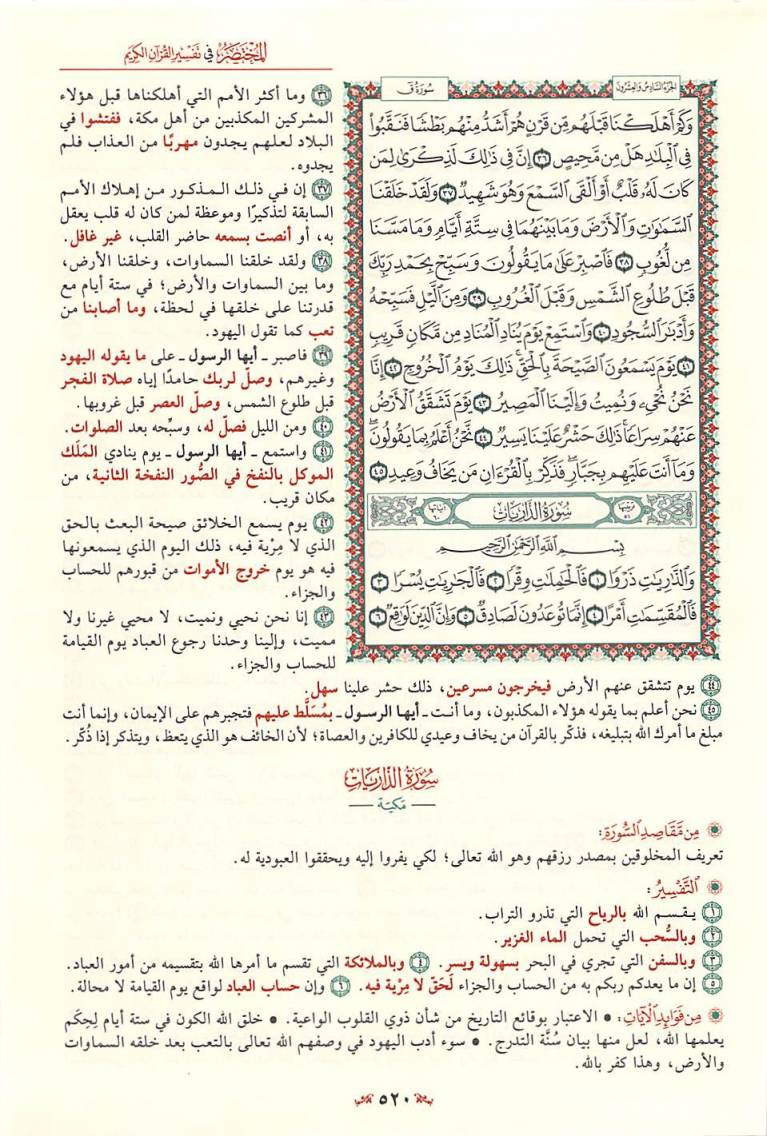 المختصر في تفسير القرآن الكريم
الجزء السادس والعشرون
سورة ق
وَكَمْ أَهْلَكْنَا قَبْلَهُم مِّن قَرْنٍ هُمْ أَشَدُّ مِنْهُم بَطْشًا فَنَقَّبُوا۟
فِى ٱلْبِلَٰدِ هَلْ مِن مَّحِيصٍ ٣٦ إِنَّ فِى ذَٰلِكَ لَذِكْرَىٰ لِمَن
كَانَ لَهُۥ قَلْبٌ أَوْ أَلْقَى ٱلسَّمْعَ وَهُوَ شَهِيدٌ ٣٧ وَلَقَدْ خَلَقْنَا
ٱلسَّمَٰوَٰتِ وَٱلْأَرْضَ وَمَا بَيْنَهُمَا فِى سِتَّةِ أَيَّامٍ وَمَا مَسَّنَا
مِن لُّغُوبٍ ٣٨ فَٱصْبِرْ عَلَىٰ مَا يَقُولُونَ وَسَبِّحْ بِحَمْدِ رَبِّكَ
قَبْلَ طُلُوعِ ٱلشَّمْسِ وَقَبْلَ ٱلْغُرُوبِ ٣٩ وَمِنَ ٱلَّيْلِ فَسَبِّحْهُ
وَأَدْبَٰرَ ٱلسُّجُودِ ٤٠ وَٱسْتَمِعْ يَوْمَ يُنَادِ ٱلْمُنَادِ مِن مَّكَانٍ قَرِيبٍ
٤١ يَوْمَ يَسْمَعُونَ ٱلصَّيْحَةَ بِٱلْحَقِّ ذَٰلِكَ يَوْمُ ٱلْخُرُوجِ ٤٢ إِنَّا
نَحْنُ نُحْىِۦ وَنُمِيتُ وَإِلَيْنَا ٱلْمَصِيرُ ٤٣ يَوْمَ تَشَقَّقُ ٱلْأَرْضُ
عَنْهُمْ سِرَاعًا ذَٰلِكَ حَشْرٌ عَلَيْنَا يَسِيرٌ ٤٤ نَّحْنُ أَعْلَمُ بِمَا يَقُولُونَ
وَمَا أَنتَ عَلَيْهِم بِجَبَّارٍ فَذَكِّرْ بِٱلْقُرْءَانِ مَن يَخَافُ وَعِيدِ ٤٥
ترتيبها ٥١
سورة الذاريات
آياتها ٦٠
بِسْمِ ٱللَّهِ ٱلرَّحْمَٰنِ ٱلرَّحِيمِ
وَٱلذَّٰرِيَٰتِ ذَرْوًا ١ فَٱلْحَٰمِلَٰتِ وِقْرًا ٢ فَٱلْجَٰرِيَٰتِ يُسْرًا ٣
فَٱلْمُقَسِّمَٰتِ أَمْرًا ٤ إِنَّمَا تُوعَدُونَ لَصَادِقٌ ٥ وَإِنَّ ٱلدِّينَ لَوَٰقِعٌ ٦
٣٦ وما أكثر الأمم التي أهلكناها قبل هؤلاء
المشركين المكذبين من أهل مكة، ففتشوا في
البلاد لعلهم يجدون مهربًا من العذاب فلم
يجدوه.
٣٧ إن في ذلك المذكور من إهلاك الأمم
السابقة لتذكيرًا وموعظة لمن كان له قلب يعقل
به، أو أنصت بسمعه حاضر القلب، غير غافل.
٣٨ ولقد خلقنا السماوات، وخلقنا الأرض،
وما بين السماوات والأرض؛ في ستة أيام مع
قدرتنا على خلقها في لحظة، وما أصابنا من
تعب كما تقول اليهود.
٣٩ فاصبر ـ أيها الرسول ـ على ما يقوله اليهود
وغيرهم، وصلّ لربك حامدًا إياه صلاة الفجر
قبل طلوع الشمس، وصلّ العصر قبل غروبها.
٤٠ ومن الليل فصلّ له، وسبّحه بعد الصلوات.
٤١ واستمع ـ أيها الرسول ـ يوم ينادي المَلَك
الموكل بالنفخ في الصُّور النفخة الثانية، من
مكان قريب.
٤٢ يوم يسمع الخلائق صيحة البعث بالحق
الذي لا مِرْية فيه، ذلك اليوم الذي يسمعونها
فيه هو يوم خروج الأموات من قبورهم للحساب
والجزاء.
٤٣ إنا نحن نحيي ونميت، لا محيي غيرنا ولا
مميت، وإلينا وحدنا رجوع العباد يوم القيامة
للحساب والجزاء.
٤٤ يوم تتشقق عنهم الأرض فيخرجون مسرعين، ذلك حشر علينا سهل.
٤٥ نحن أعلم بما يقوله هؤلاء المكذبون، وما أنت ـ أيها الرسول ـ بمُسَلَّط عليهم فتجبرهم على الإيمان، وإنما أنت
مبلغ ما أمرك الله بتبليغه، فذكّر بالقرآن من يخاف وعيدي للكافرين والعصاة؛ لأن الخائف هو الذي يتعظ، ويتذكر إذا ذُكّر.
سورة الذاريات
مكية
من مقاصد السورة:
تعريف المخلوقين بمصدر رزقهم وهو الله تعالى؛ لكي يفروا إليه ويحققوا العبودية له.
التفسير:
١ يقسم الله بالرياح التي تذرو التراب.
٢ وبالسُّحب التي تحمل الماء الغزير.
٣ وبالسفن التي تجري في البحر بسهولة ويسر. ٤ وبالملائكة التي تقسم ما أمرها الله بتقسيمه من أمور العباد.
٥ إن ما يعدكم ربكم به من الحساب والجزاء لَحَقّ لا مِرْية فيه. ٦ وإن حساب العباد لواقع يوم القيامة لا محالة.
من فوائد الآيات: • الاعتبار بوقائع التاريخ من شأن ذوي القلوب الواعية. • خلق الله الكون في ستة أيام لِحِكَم
يعلمها الله، لعل منها بيان سُنَّة التدرج. • سوء أدب اليهود في وصفهم الله تعالى بالتعب بعد خلقه السماوات
والأرض، وهذا كفر بالله.
٥٢٠